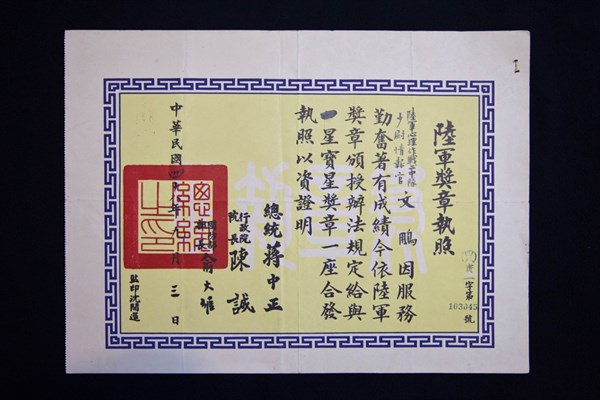 陸軍獎章執照
寶一字第
103045
號
陸軍心理作戰
文鵬因服務
勤奮著有成績今依陸軍
獎章頒授辦法規定給與
一星寶星獎章一座合發
執照以資證明
總統蔣中正
行政院院長陳誠
國防部部長俞大維
監印沈開運
中華民國四十九年九月三日
總統之印